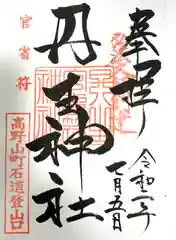 奉拝
令和二年
七月五日
丹生神社
官省符
高野山町石道登山口